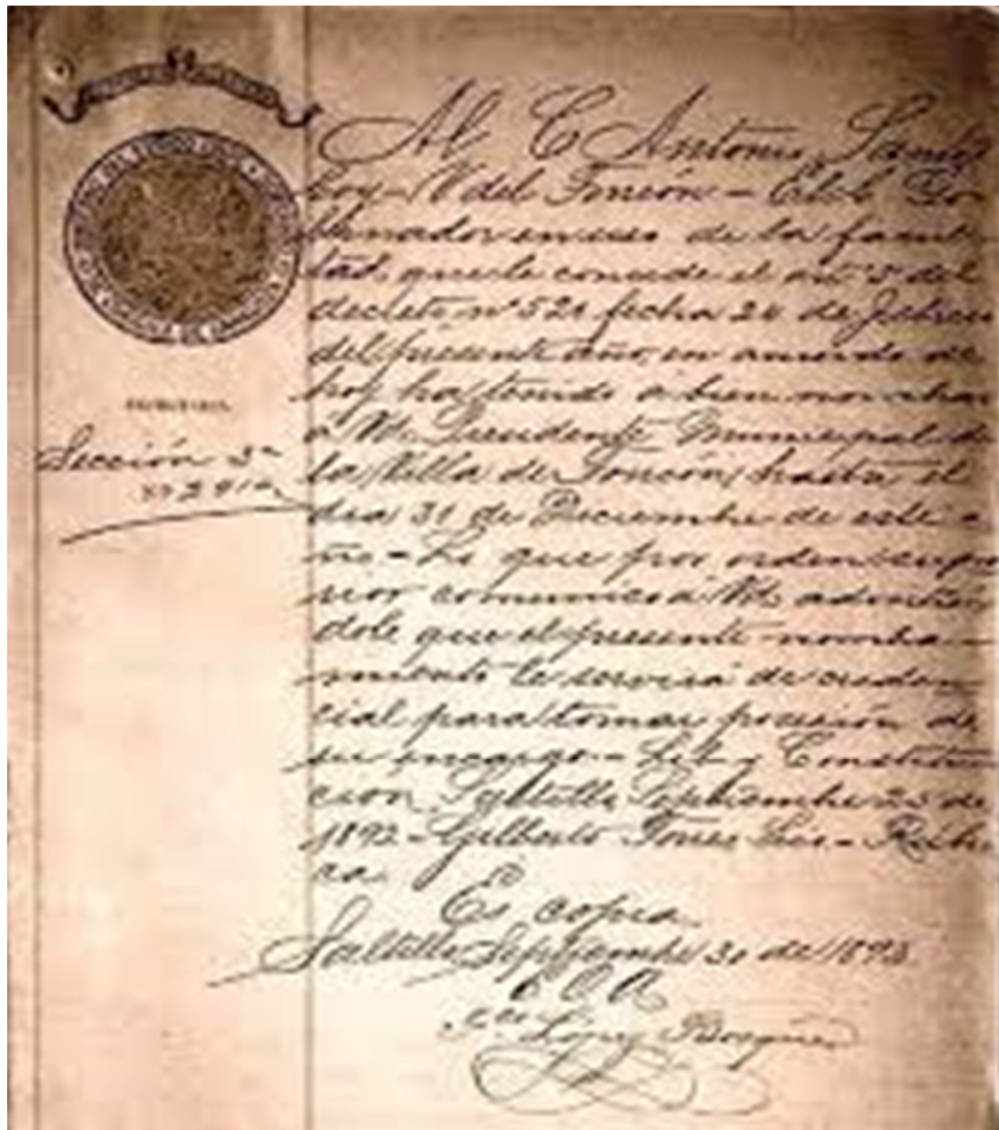 Sección 3ª
Al C Antonio
del Torreón – El C. Go
bernador en uso de la facul
tad que le concede el art 5º del
decreto nº 521 fecha 24 de febrero
del presente año, en acuerdo de
hoy ha tenido a bien nombrar
á Vd. Presidente Municipal de
la Villa de Torreón, hasta el
día 31 de Diciembre de este a
ño – Lo que por orden supe
rior comunico á Vd. advirtién
dole que el presente nombra
miento le servirá de creden
cial para tomar posesión de
su encargo – Lib. y Constitu
cion Saltillo Septiembre 25 de
1893 – Rúbri
ca.
Es copia.
Saltillo Septiembre 30 de 1893